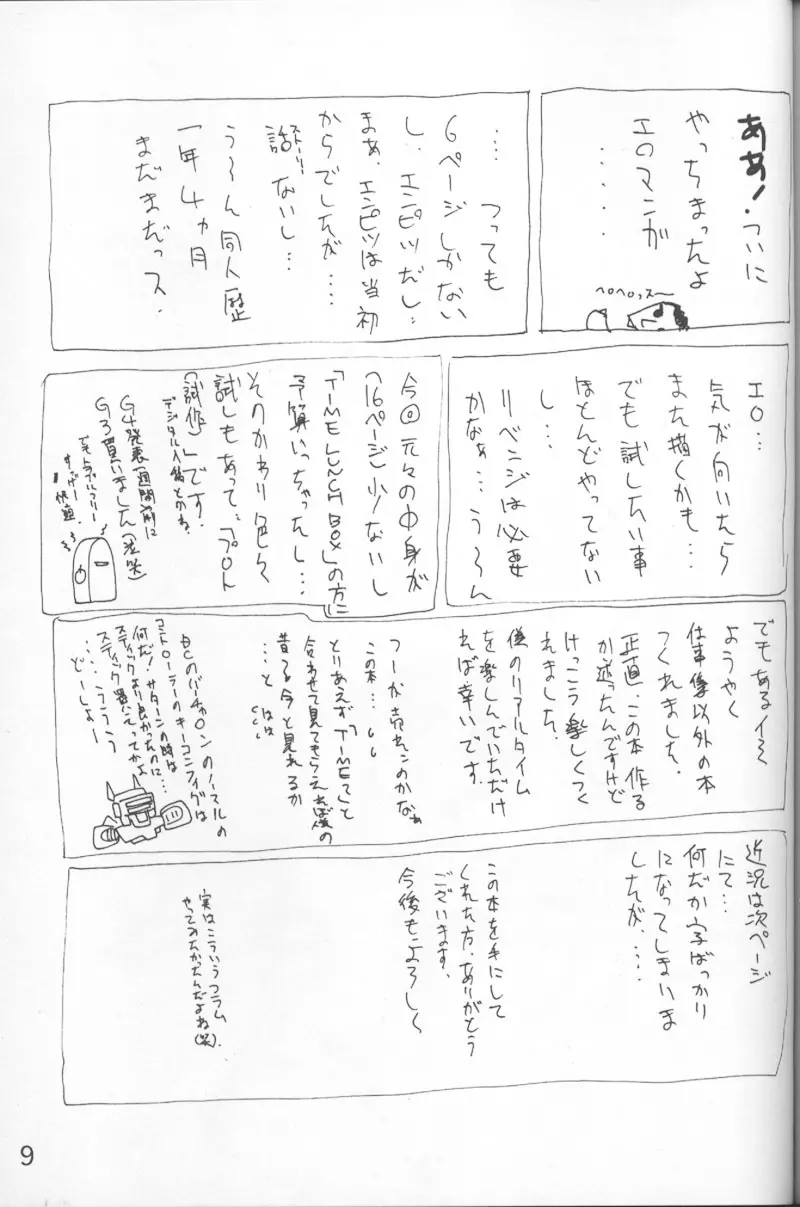 ああ!ついに
やっちまったよ
エロマンガ
・・・・・
ヘロヘロっス〜
… つっても
6ページしかない
し、エンピツだし…
まぁ、エンピツは当初
からでしたが……
話ストーリーないし…
う〜ん同人歴
一年4ヵ月
まだまだっス.
エロ…
気が向いたら
また描くかも…
でも試したい事
ほとんどやってない
し…
リベンジは必要
かなぁ…う〜ん
今回元々の中身が
(16ページ)少ないし
「TIME LUNCH BOX」の方に
予算いっちゃったし…
そのかわり色々
試しもあって…「プロト
(試作)」です.
デジタル入稿とかね.
G4発表一週間前に
G3買いました(泣笑)
でもトラブルフリー
すっげー
快適.
でもある1く
ようやく
仕事像以外の本
つくれました.
正直、この本作る
か迷ったんですけど
けっこう楽しくつく
れました.
僕のリアルタイム
を楽しんでいただけ
れば幸いです.
つーか売れんのかなぁ
この本…
とりあえず「TIME」と
合わせて見てもらえれば僕の
昔と今と見れるか
…と はは
DCのバーチャロンのノーマルの
コントローラーのキーコンフィグは
何だ!サターンの時は
スティックより良かったのに…
スティック買えってかよ
……うううう
どーしよー
近況は次ページ
にて…
何だか字ばっかり
になってしまいま
したが、….
この本を手にして
くれた方、ありがとう
ございます.
今後もよろしく
実はこういうコラム
やってみたかったんだよね(笑).
9